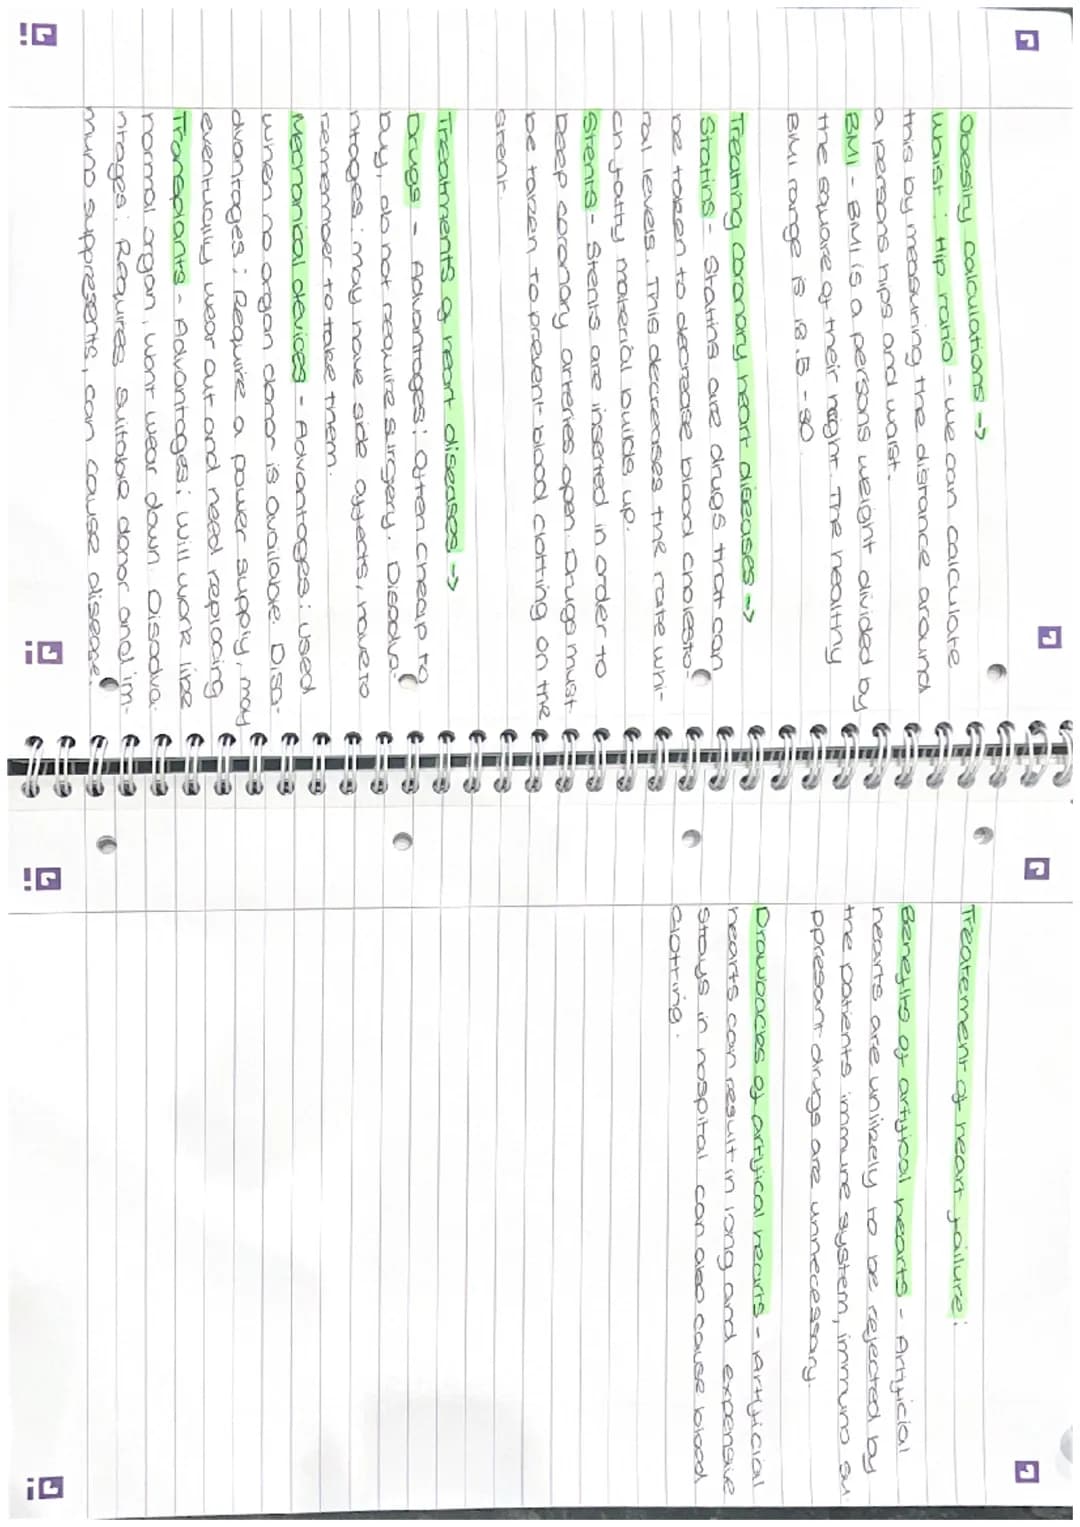 Obesity calculations ->
Waist : Hip ratio - we can calculate
this by measuring the distance around
a persons hips and waist.
BMI - BMI is a persons weight divided by
the square of their hright. The healthy
BMI range is 18.5 - 30
Treating coronary heart diseases ->
Statins - Statins are drugs that can
be taken to decrease blood cholesto-
ral levels. This decreases the rate whi-
ch fatty material builds up.
Stents - Stents are inserted in order to
keep coronary arteries open. Drugs must
be taken to prevent blood clotting on the
stent.
Treatments of heart diseases ->
Drugs - Advantages: often cheap to
buy, do not require surgery. Disadva-
ntages: may have side affects, have to
remember to take them.
Mechanical devices - Advantages: used
when no organ donor is available. Disa-
dvantages: Require a power supply, may
eventually wear out and need replacing
Transplants - Advantages: will work like
normal organ, wont wear down Disadva-
ntages: Requires suitable donor and im-
muno suppresents, can cause disease.
Treatement of heart failure:
Benefits of artifical hearts - Artificial
hearts are unlikely to be rejected by
the patients immune system, immuno su-
ppresant drugs are unnecessary.
Drawbacks of artifical hearts - Artificial
hearts can result in long and expensive
stays in hospital can also cause blood
clotting.